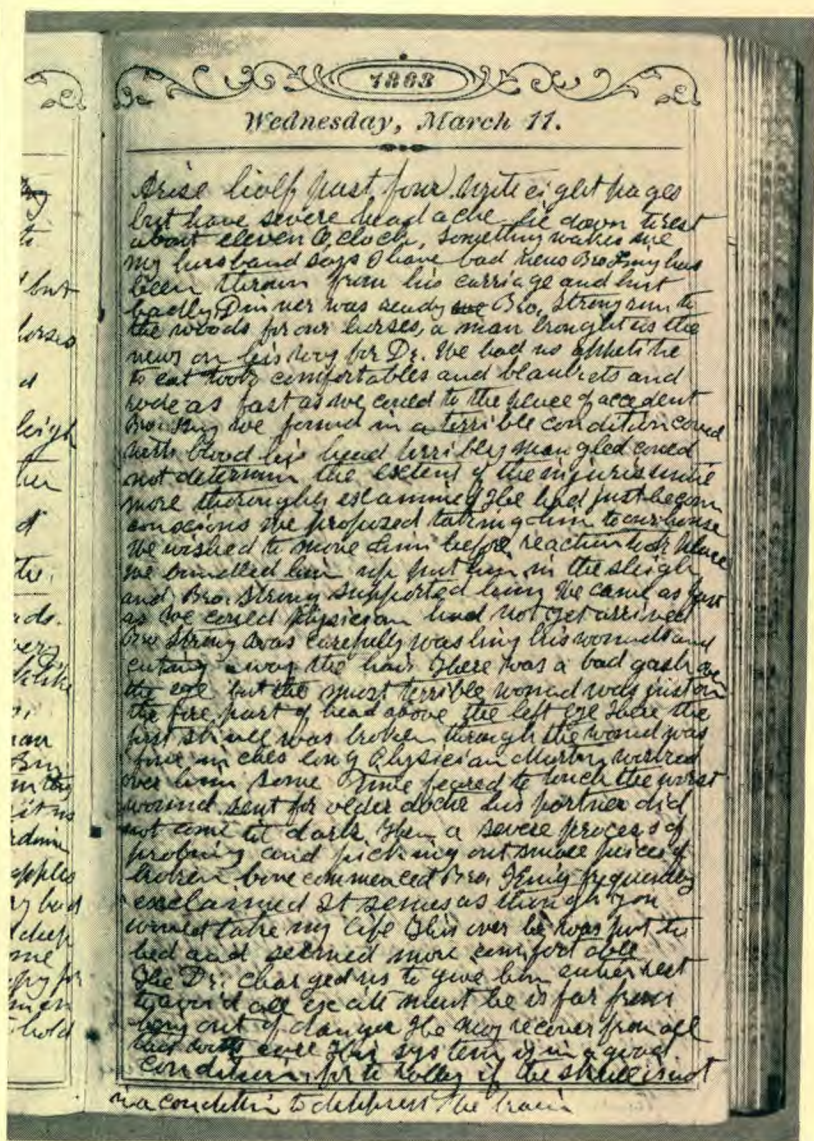 1863
Wednesday, March 11.
Arise half past four write eight pages
but have severe head ache lie down to rest
about eleven O,clock, something wakes me
my husband says I have bad news Bro has
been thrown from his carriage and hurt
badly Dinner was ready Bro. Strong run to
the woods for our horses, a man brought us the
news on his way for Dr. We had no appetite
to eat took comfortables and blankets and
rode as fast as we could to the place of accedent
Bro. we found in a terrible condition coverd
with blood his head terribly mangled could
not determin the extent of the injuries until
more thoroughly examined He had just began
conscious we proposed taking him to our house
We wished to move him before reaction took place
we bundled him up put him in the sleigh
and Bro. Strong supported him We came as fast
as we could Physician had not yet arrived
Bro Strong was carefully washing his wounds and
cutting away the hair There was a bad gash over
the eye but the most terrible wound was just on
the fore part of head above the left eye Here the
first skull was broken through the wound was
four inches long Physician worked
over him some time feared to touch the worst
wound sent for older doctor his partner did
not come til dark Then a severe process of
probing and picking out small pieces of
broken bone commenced Bro. frequently
exclaimed It seems as though you
would take my life This over he was put to
bed and seemed more comfortable
The Dr. charged us to give him entire rest
to avoid all excitement he is far from
being out of danger He may recover from all
this well His system is in a good
condition, for to rally if the skull is not
in a condition to deppress the brain
but
horses
d
sleigh
her
d
ads.
very
like
man
Bro
apples
bad
deep
me
for
hold